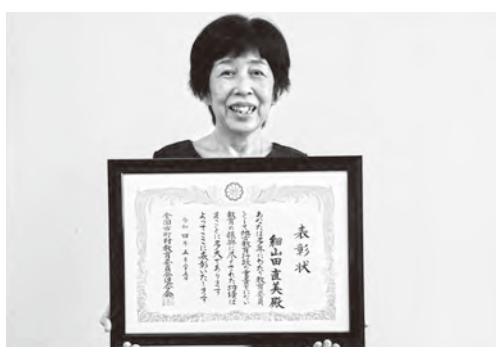 表彰状
細山田直美殿
あなたは多年にわたり教育委員
として地方教育行政の重責をにない
教育の振興に尽くされた功績は
まことに多大であります
よってここに表彰いたします
令和四年五月
全国市町村教育委員会連合会